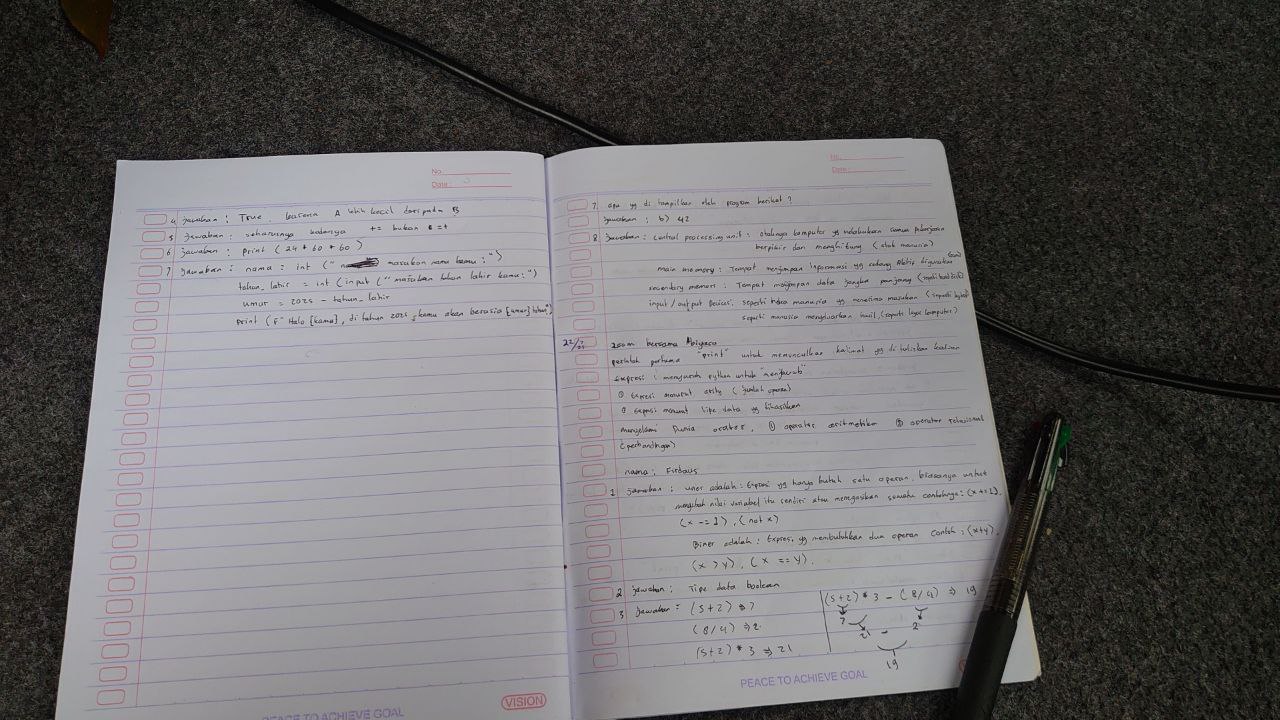 No.
Date:
4 jawaban : True karena A lebih kecil daripada B
5 jawaban : seharusnya kodenya += bukan =+
6 jawaban : print (24 * 60 * 60)
7 jawaban : nama = int (" masukan nama kamu : ")
tahun_lahir = int (input (" masukan tahun lahir kamu : ")
umur = 2025 - tahun_lahir
print (F" Halo [kamu], di tahun 2025 kamu akan berusia [umur] tahun")
VISION
PEACE TO ACHIEVE GOAL
No.
Date:
7 apa yg di tampilkan oleh program berikut ?
jawaban : b) 42
8 jawaban : central processing unit : otaknya komputer yg melakukan semua pekerjaan
berpikir dan menghitung (otak manusia)
main memory : Tempat menyimpan informasi yg sedang Aktif digunakan
secondary memori : Tempat menyimpan data jangka panjang
input / output Devices : seperti manusia yg menerima masukan
seperti manusia mengeluarkan hasil (seperti layar komputer)
22/7/25 zoom bersama Abiyasa
perintah pertama "print" untuk memunculkan kalimat yg di tuliskan kedalam
Expresi : menyuruh python untuk "menjawab"
① Expresi menurut arity (jumlah operan)
② Expresi menurut tipe data yg dihasilkan
menyelami Dunia , ① operator aritmetika ② operator relasional
(perbandingan)
nama : Firdaus
1 jawaban : uner adalah : Expresi yg hanya butuh satu operan, biasanya untuk
mengubah nilai variabel itu sendiri atau menegasikan sesuatu contohnya : (x += 1).
(x -= 1), (not x)
Biner adalah : Expresi yg membutuhkan dua operan contoh : (x+y),
(x > y), (x == y).
2 jawaban : Tipe data boolean
3 jawaban = (5+2) => 7
(8/4) => 2
(5+2) * 3 => 21
(5+2) * 3 - (8/4) => 19
7
2
21 -
19
PEACE TO ACHIEVE GOAL